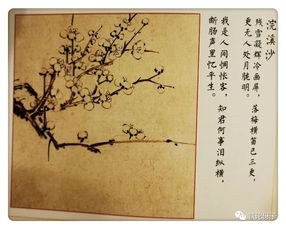 浣溪沙
残雪凝辉冷画屏，落梅横笛已三更，
更无人处月胧明。
我是人间惆怅客，知君何事泪纵横，
断肠声里忆平生。